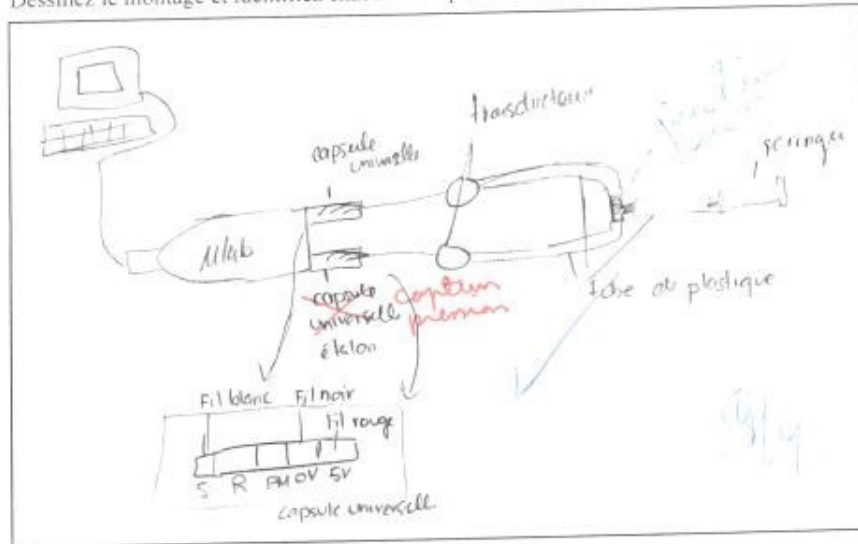 Dessinez le montage et identifiez
transducteur
capsule
universelle
seringue
µlab
capsule
universelle
étalon
capteur
pression
tube de plastique
Fil blanc Fil noir
Fil rouge
S R PM 0V 5V
capsule universelle